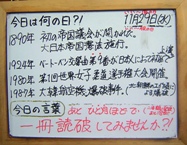 今日は何の日?!
11月29日(水)
1890年 初の帝国議会が開かれた。
大日本帝国憲法施行。
1924年 ベートーベン交響曲第9番が日本人によって
1980年 第1回世界女子柔道選手権大会開催。
1987年 大韓航空機爆破事件。
今日の言葉
あと ひと月ほどで
一冊読破してみませんか?!